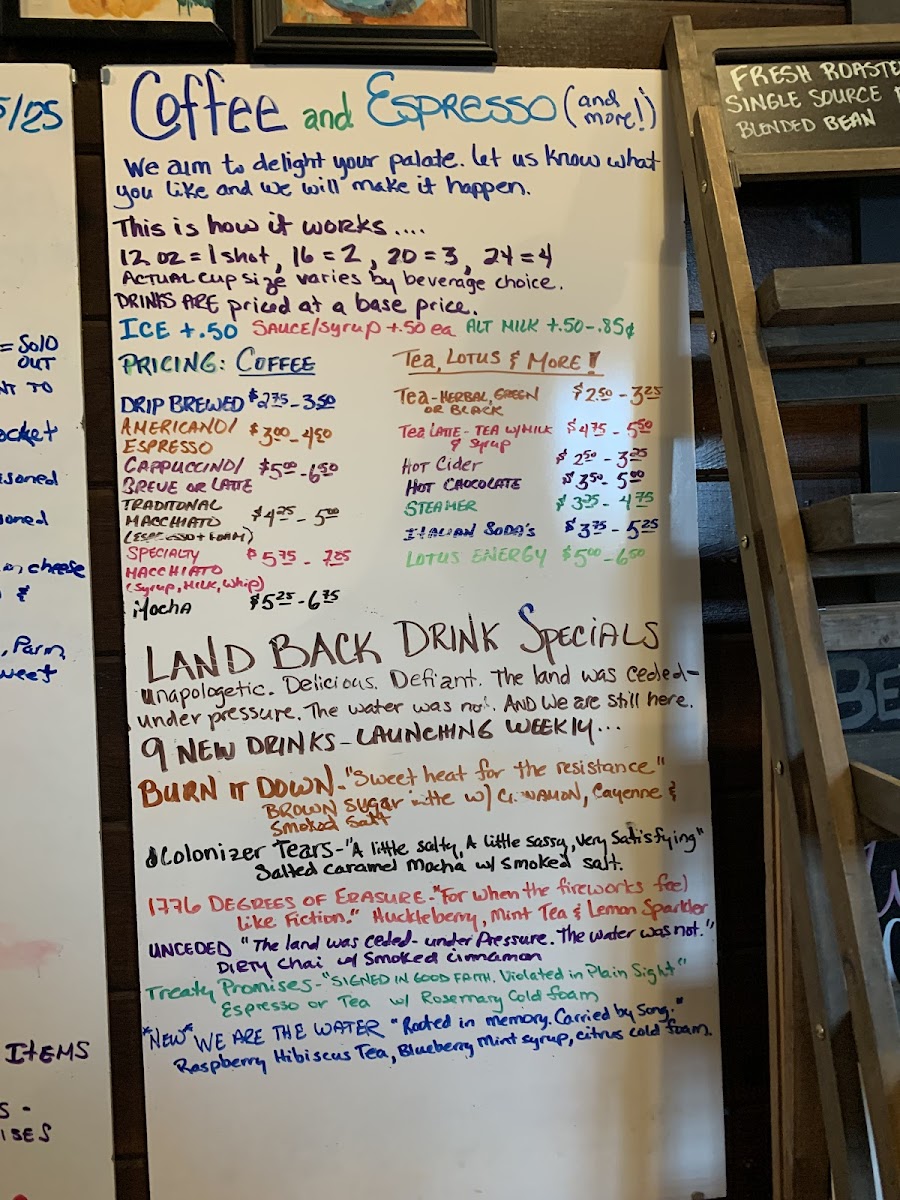 5/25
= SOLD
OUT
NT TO
ocket
soned
oned
in cheese
&
, Parm
weet
ITEMS
S -
ISES
Coffee and Espresso (and more!)
We aim to delight your palate. Let us know what
you like and we will make it happen.
This is how it works....
12 oz = 1 shot, 16 = 2, 20 = 3, 24 = 4
ACTUAL cup size varies by beverage choice.
DRINKS ARE priced at a base price.
ICE +.50 SAUCE/Syrup +.50 ea ALT MILK +.50-.85¢
PRICING: COFFEE
DRIP BREWED $2.75-3.50
AMERICANO/ $3.00-4.50
ESPRESSO
CAPPUCCINO/ $5.00-6.50
BREVE OR LATTE
TRADITONAL
MACCHIATO $4.25-5.00
(ESPRESSO + FOAM)
SPECIALTY $5.75-7.25
MACCHIATO
(Syrup, MILK, Whip)
Mocha $5.25-6.75
Tea, LOTUS & MORE!
Tea-HERBAL, GREEN $2.50-3.25
OR BLACK
Tea LATTE-TEA W/MILK $4.75-5.50
& Syrup
HOT Cider $2.50-3.25
HOT CHOCOLATE $3.50-5.00
STEAMER $3.25-4.75
ITALIAN SODA'S $3.75-5.25
LOTUS ENERGY $5.00-6.50
LAND BACK DRINK SPECIALS
Unapologetic. Delicious. Defiant. The land was ceded-
under pressure. The water was not. AND we are still here.
9 NEW DRINKS-LAUNCHING WEEKLY...
BURN IT DOWN-"Sweet heat for the resistance"
BROWN Sugar latte w/ CINNAMON, Cayenne &
Smoked Salt
Colonizer Tears-"A little salty, A little sassy, very satisfying"
Salted caramel Mocha w/ smoked salt.
1776 DEGREES OF ERASURE-"For when the fireworks feel
like Fiction." Huckleberry, Mint Tea & Lemon Sparkler
UNCEDED "The land was ceded-under Pressure. The water was not."
DIRTY Chai w/ Smoked Cinnamon
Treaty Promises-"SIGNED IN GOOD FAITH. Violated in Plain Sight"
Espresso or Tea w/ Rosemary Cold foam
*NEW* WE ARE THE WATER "Rooted in memory. Carried by Song."
Raspberry Hibiscus Tea, Blueberry Mint syrup, citrus cold foam.
FRESH ROASTE
SINGLE SOURCE
BLENDED BEAN
BE